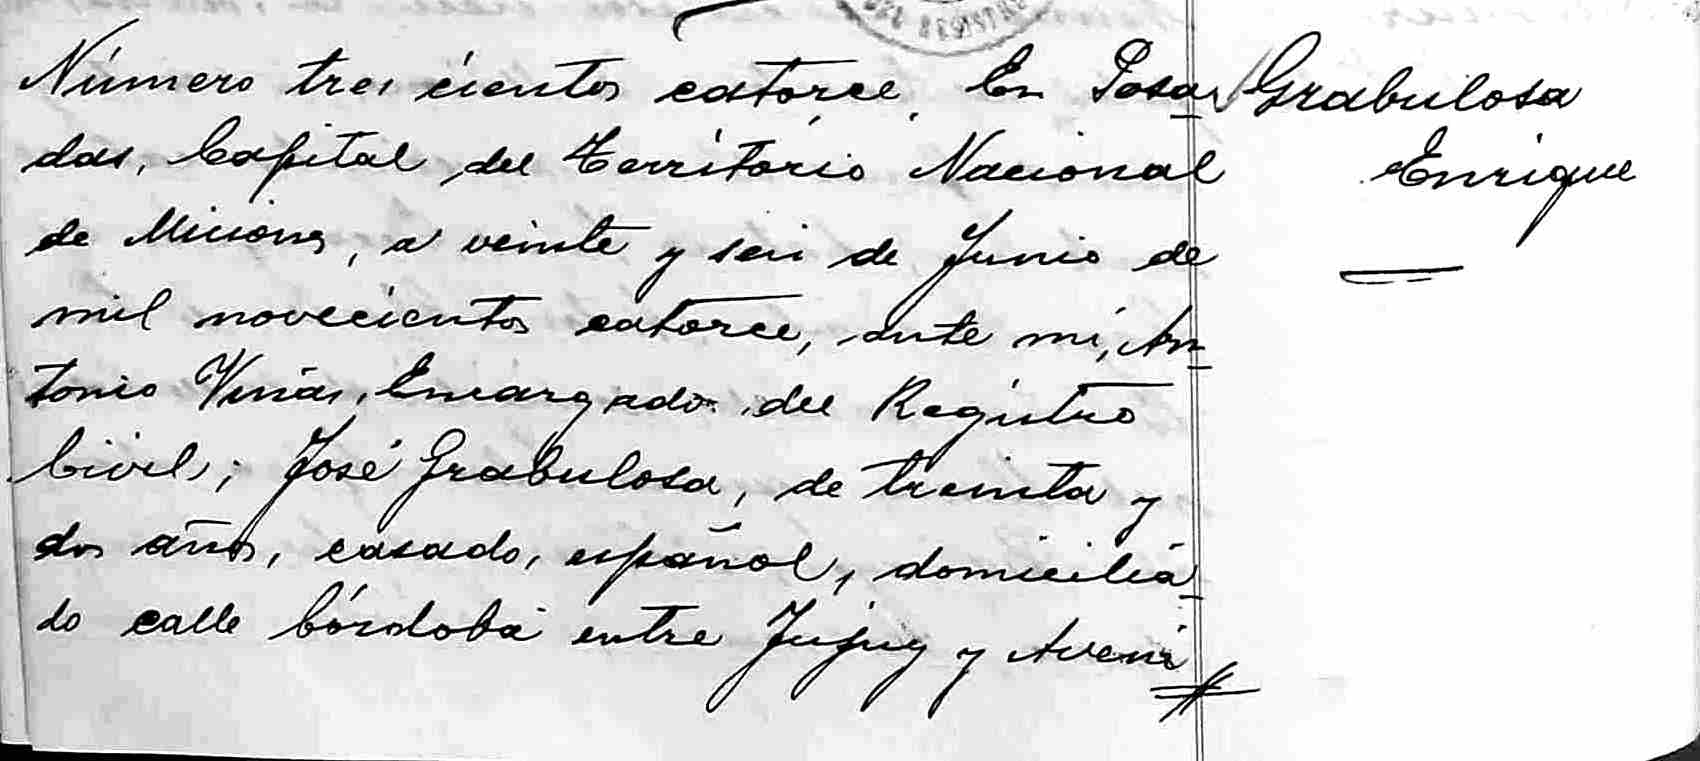 Número tres cientos catorce. En Posa-
das, Capital del Territorio Nacional
de Miciones, a veinte y seis de Junio de
mil novecientos catorce, ante mí, An-
tonio Viñas, Encargado del Registro
Civil; José Grabulosa, de treinta y
dos años, casado, español, domicilia-
do calle Córdoba entre Jujuy y Aveni
Grabulosa
Enrique